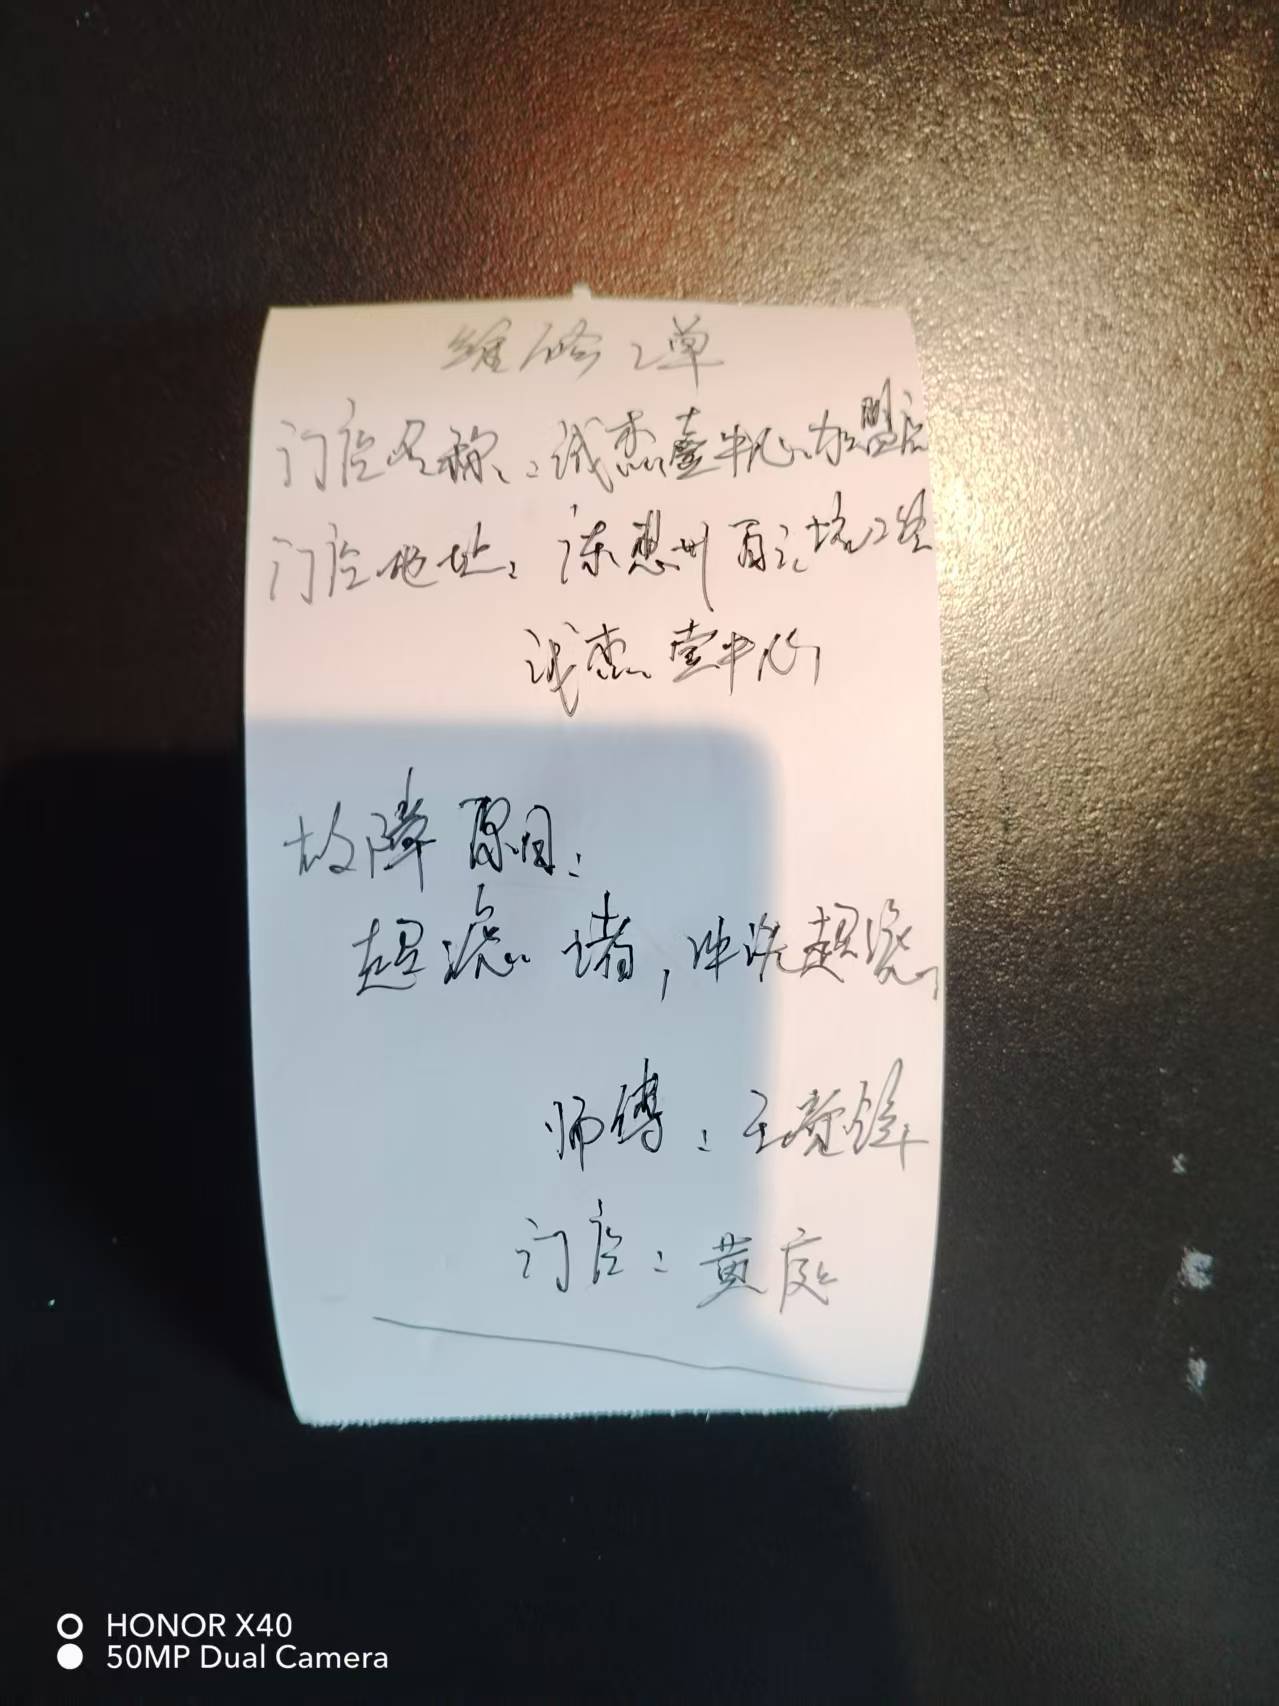 维修工单
门店名称：诚杰壹中心加盟店
门店地址：惠州
诚杰壹中心
故障原因：
超滤堵，冲洗超滤
师傅：王
门店：黄庭
HONOR X40
50MP Dual Camera